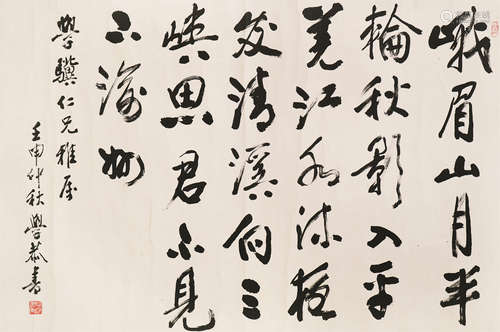 峨眉山月半
輪秋影入平
羌江水流夜
發清溪向三
峽思君不見
下渝州
學驥仁兄雅屬
壬申仲秋學恭書